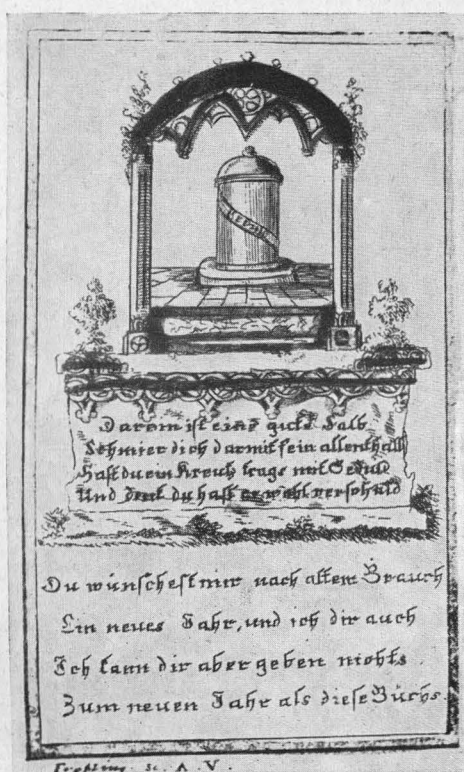 Darein ist eine gute Salb
Schmier dich darmit fein allenthalb
Hast du ein Kreutz trage mit Geduld
Und denk du hast er wohl verschuld
Du wünschest mir nach altem Brauch
Ein neues Jahr, und ich dir auch
Ich kann dir aber geben nichts
Zum neuen Jahr als diese Büchs.
sc. A. V.